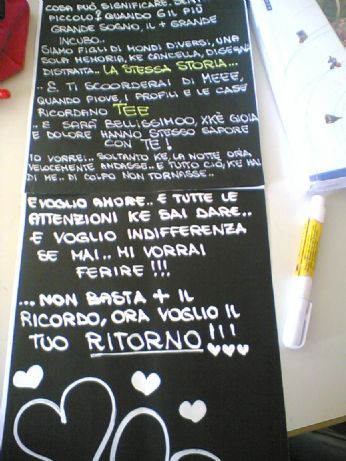 COSA PUÒ SIGNIFICARE. SEN
PICCOLO! QUANDO 6 IL PIÙ
GRANDE SOGNO, IL + GRANDE
INCUBO..
SIAMO FIGLI DI MONDI DIVERSI, UNA
SOLA MEMORIA, KE CANCELLA, DISEGNA
DISTRATTA.. LA STESSA STORIA...
.. E TI SCOORDERAI DI MEEE,
QUANDO PIOVE, I PROFILI E LE CASE
RICORDANO TEE
.. E SARÀ BELLISSIMOO, XKÈ GIOIA
E DOLORE HANNO STESSO SAPORE
CON TE!
IO VORREI... SOLTANTO KE, LA NOTTE ORA
VELOCEMENTE ANDASSE.. E TUTTO CIÒ, KE HAI
DI ME.. DI COLPO NON TORNASSE..
E VOGLIO AMORE.. E TUTTE LE
ATTENZIONI KE SAI DARE..
E VOGLIO INDIFFERENZA
SE MAI.. MI VORRAI
FERIRE!!!
...NON BASTA + IL
RICORDO, ORA VOGLIO IL
TUO RITORNO!!!